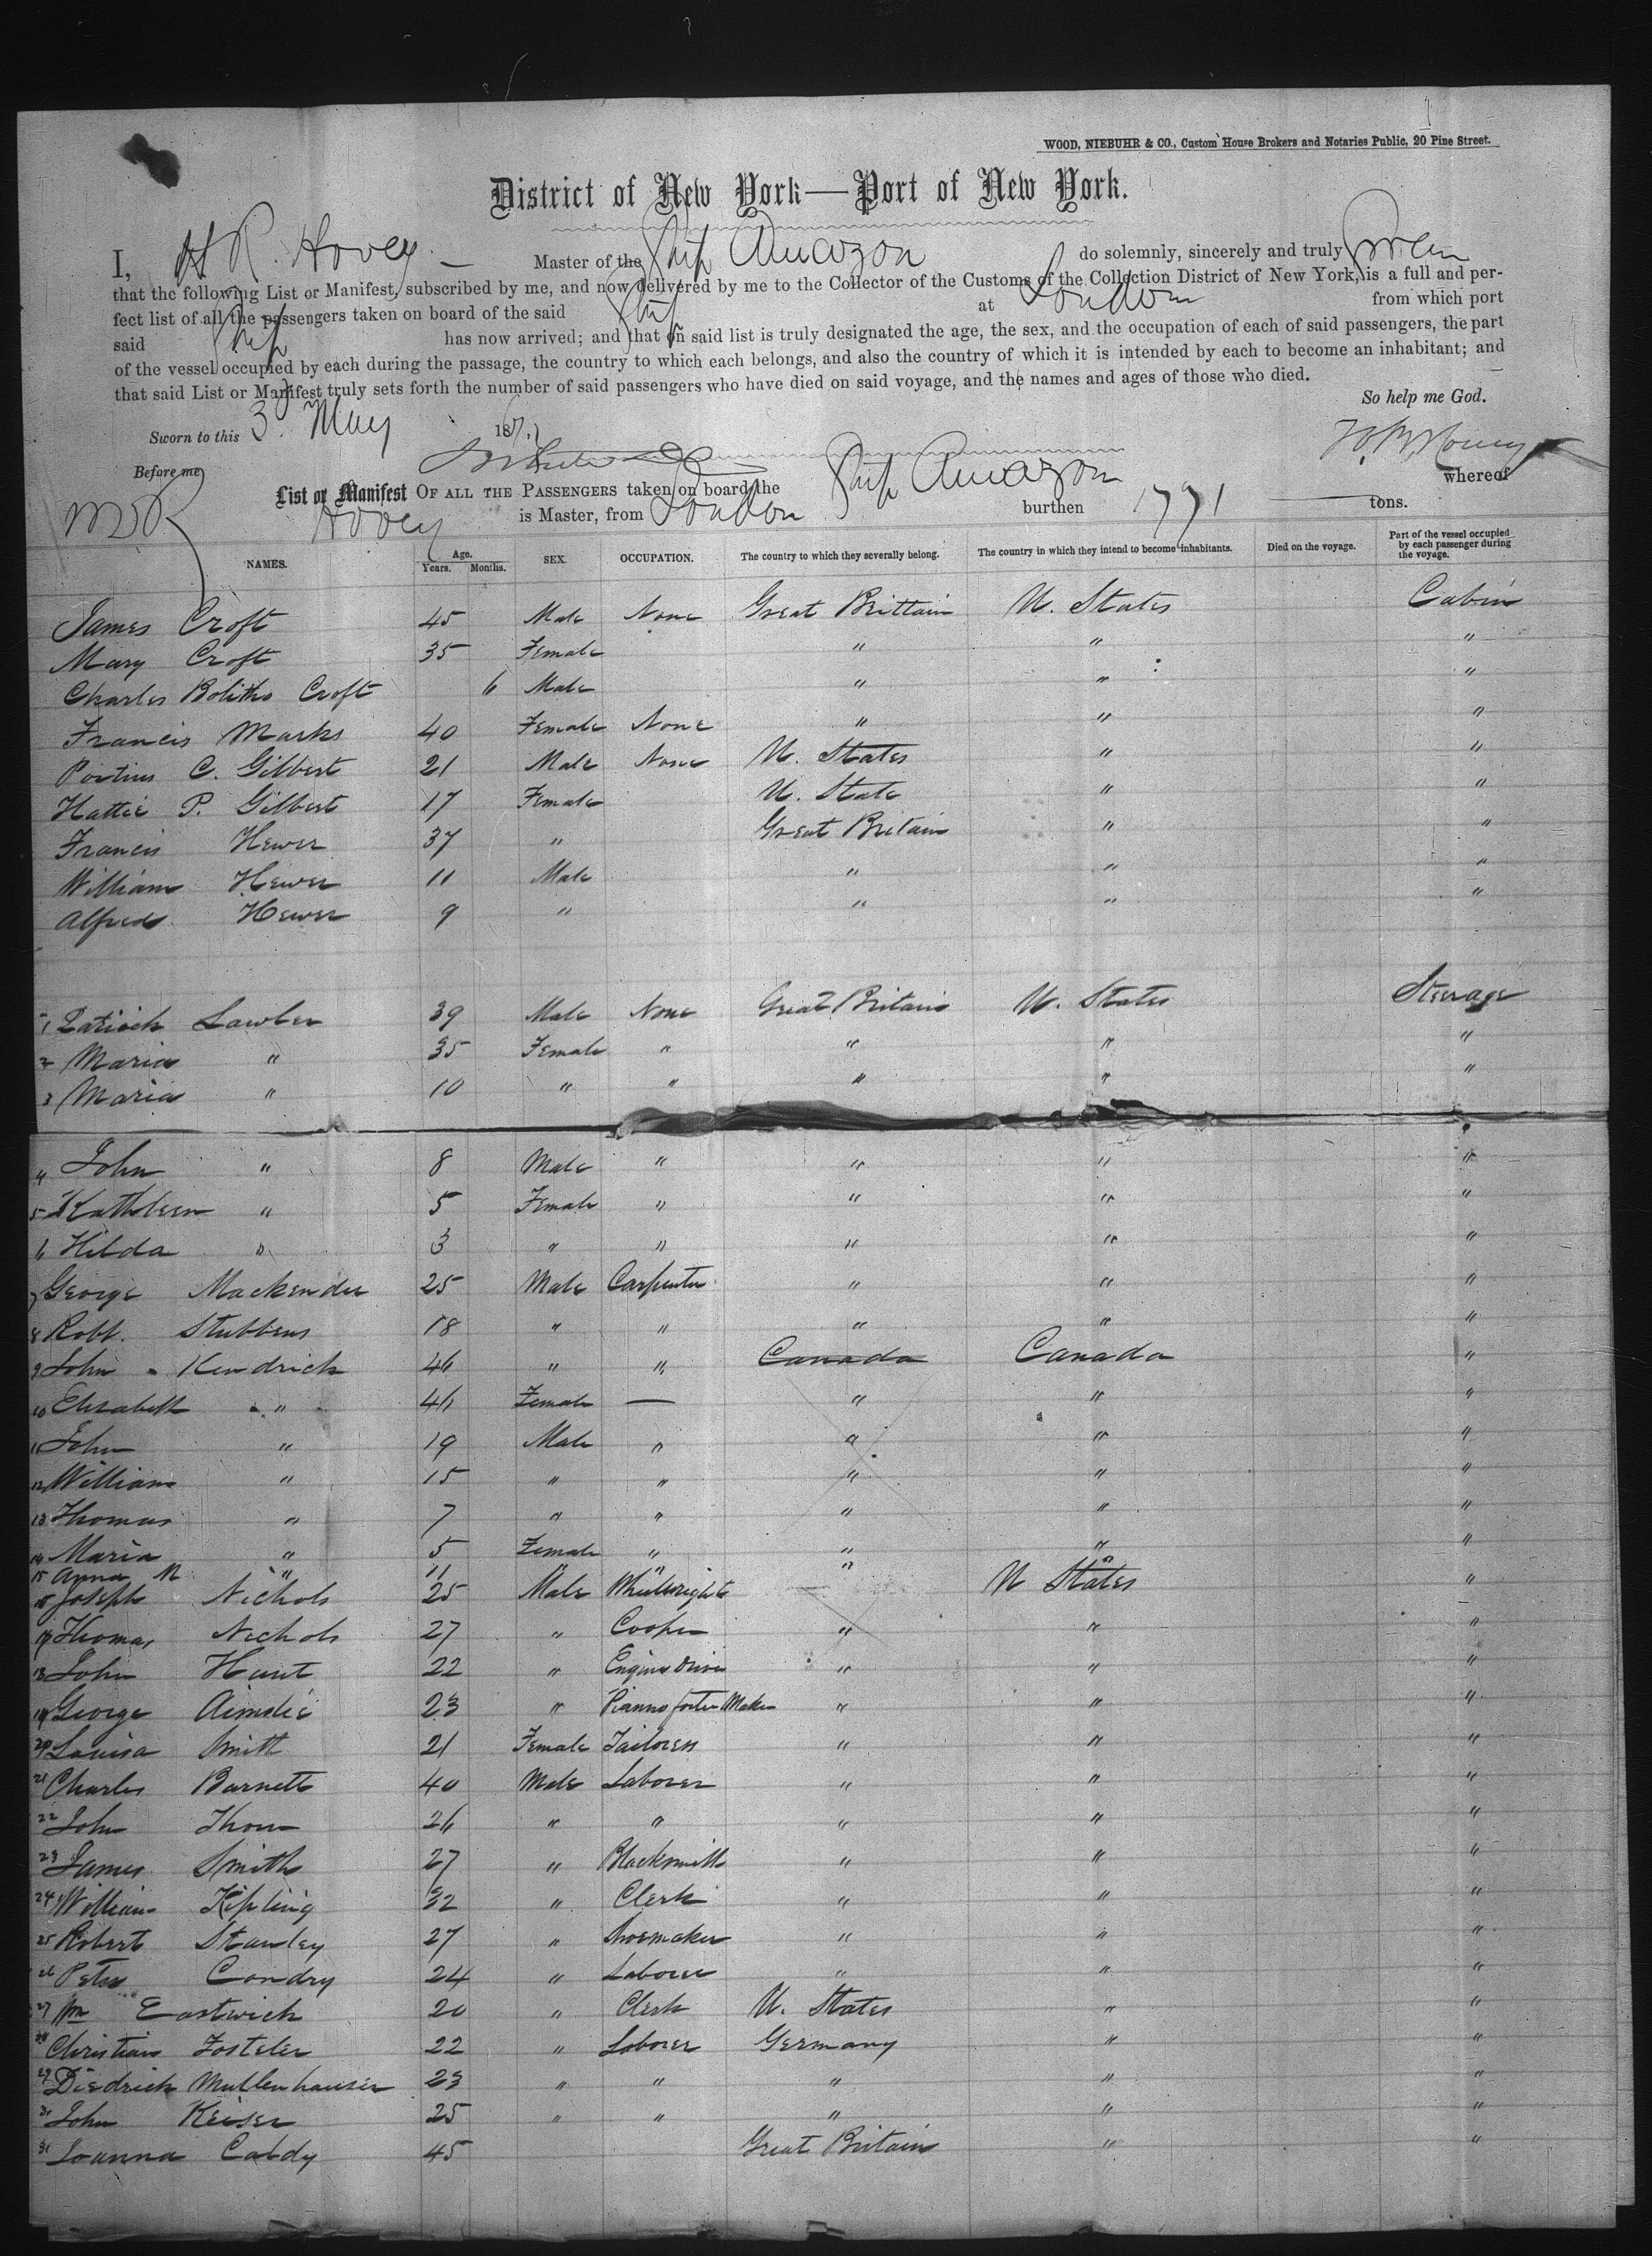 WOOD, NIEBUHR & CO., Custom House Brokers and Notaries Public, 20 Pine Street.
District of New York—Port of New York.
I, H R. Hovey — Master of the Ship Amazon do solemnly, sincerely and truly swear
that the following List or Manifest, subscribed by me, and now delivered by me to the Collector of the Customs of the Collection District of New York, is a full and per-
fect list of all the passengers taken on board of the said Ship at London from which port
said Ship has now arrived; and that on said list is truly designated the age, the sex, and the occupation of each of said passengers, the part
of the vessel occupied by each during the passage, the country to which each belongs, and also the country of which it is intended by each to become an inhabitant; and
that said List or Manifest truly sets forth the number of said passengers who have died on said voyage, and the names and ages of those who died.
So help me God.
Sworn to this 3 May 187
Before me
List or Manifest OF ALL THE PASSENGERS taken on board the Ship Amazon whereof
Hovey is Master, from London burthen 1771 tons.
NAMES. Age. Years. Months. SEX. OCCUPATION. The country to which they severally belong. The country in which they intend to become inhabitants. Died on the voyage. Part of the vessel occupied by each passenger during the voyage.
James Croft 45 Male None Great Brittain U. States Cabin
Mary Croft 35 Female " " "
Charles Bolitho Croft 6 Male " " "
Francis Marks 40 Female None " " "
Portius C. Gilbert 21 Male None U. States " "
Hattie P. Gilbert 17 Female U. State " "
Francis Hewer 37 " Great Britain " "
William Hewer 11 Male " " "
Alfred Hewer 9 " " " "
1 Lawler 39 Male None Great Britain U. States Steerage
2 Maria " 35 Female " " " "
3 Maria " 10 " " " " "
4 John " 8 Male " " " "
5 Kathleen " 5 Female " " " "
6 Hilda " 3 " " " " "
7 George Mackender 25 Male Carpenter " " "
8 Robt. Stubbens 18 " " " " "
9 John Kendrick 46 " " Canada Canada "
10 Elizabeth " 46 Female — " " "
11 John " 19 Male " " " "
12 William " 15 " " " " "
13 Thomas " 7 " " " " "
14 Maria " 5 Female " " " "
15 Anna M " 11 " " " "
16 Joseph Nichols 25 Male Wheelwright U States "
17 Thomas Nichols 27 " Cooper " " "
18 John Hunt 22 " Engine Driver " " "
19 George Aimslie 23 " Pianno forte Maker " " "
20 Louisa Smith 21 Female Tailoress " " "
21 Charles Barnett 40 Male Laborer " " "
22 John Thom 26 " " " " "
23 James Smith 27 " Blacksmith " " "
24 William Kipling 32 " Clerk " " "
25 Robert Stanley 27 " Shoemaker " " "
26 Peter Condry 24 " Laborer " " "
27 Wm Eastwick 20 " Clerk U. States " "
28 Christian Zosteler 22 " Laborer Germany " "
29 Diedrick Mullenhauser 23 " " " " "
30 John Keiser 25 " " " " "
31 Joanna Caldy 45 Great Britain " "